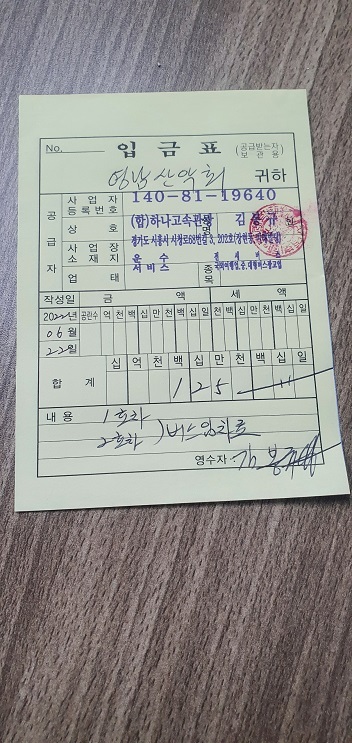 No.
입금표 (공급받는자 보관용)
영남산악회 귀하
공급자
사업자등록번호 140-81-19640
상호 (합)하나고속관광 성명 김봉규 인
사업장소재지 경기도 시흥시
업태 운수 서비스 종목 전세버스
작성일 금액 세액
2022년 공란수 억 천 백 십 만 천 백 십 일 천 백 십 만 천 백 십 일
06월
22일
십 억 천 백 십 만 천 백 십 일
합계 1 2 5
내용 1호차
2호차 ) 버스임차료
영수자: 김봉규